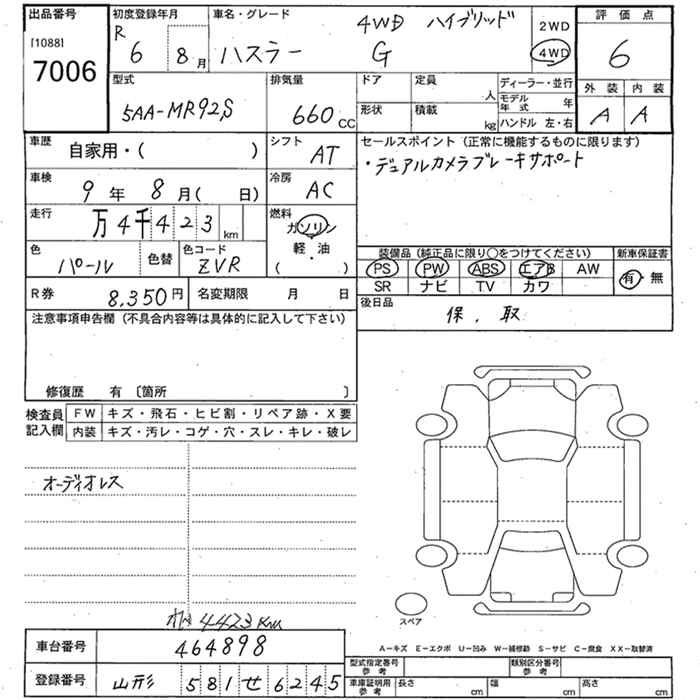 出品番号 初度登録年月 車名・グレード 評価点
[1088] R 4WD ハイブリッド 2WD
7006 6 8月 ハスラー G 4WD 6
型式 排気量 ドア 定員 人 ディーラー・並行 外装 内装
5AA-MR92S 660 CC 形状 積載 kg モデル年式 年 A A
ハンドル 左・右
車歴 自家用・( ) シフト AT セールスポイント (正常に機能するものに限ります)
・デュアルカメラブレーキサポート
車検 9年 8月( 日) 冷房 AC
走行 万4千423km 燃料 ガソリン
軽・油
( ・ )
色 パール 色替 色コード ZVR
装備品 (純正品に限り○をつけてください) 新車保証書
PS PW ABS エアB AW 有・無
SR ナビ TV カワ
R券 8,350円 名変期限 月 日 後日品
保、取
注意事項申告欄 (不具合内容等は具体的に記入して下さい)
修復歴 有 〔箇所 〕
検査員記入欄 FW キズ・飛石・ヒビ割・リペア跡・X要
内装 キズ・汚レ・コゲ・穴・スレ・キレ・破レ
オーディオレス
4423Km
スペア
車台番号 464898
A－キズ E－エクボ U－凹み W－補修跡 S－サビ C－腐食 XX－取替済
登録番号 山形 581 せ 6245
型式指定番号 参考 類別区分番号 参考
車庫証明用 参考 長さ cm 幅 cm 高さ cm